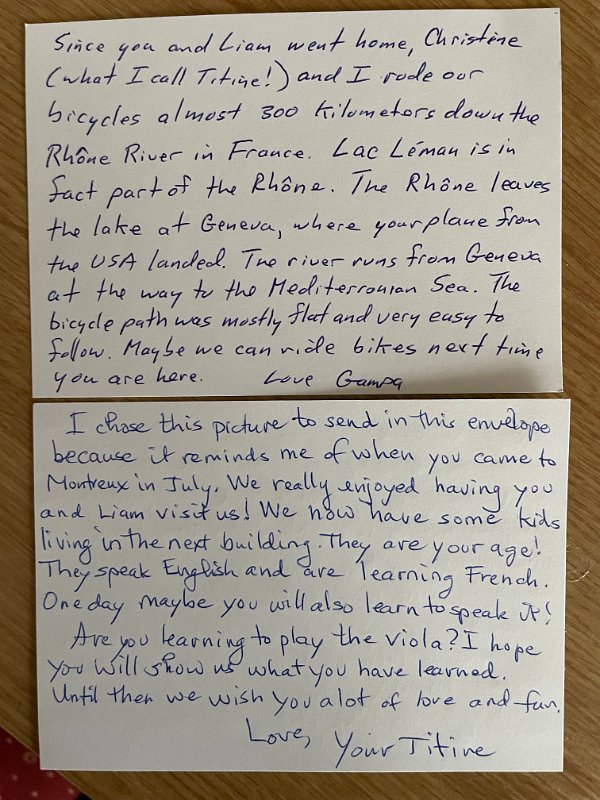 Since you and Liam went home, Christine
(what I call Titine!) and I rode our
bicycles almost 300 Kilometers down the
Rhône River in France. Lac Léman is in
fact part of the Rhône. The Rhône leaves
the lake at Geneva, where your plane from
the USA landed. The river runs from Geneva
at the way to the Mediterranian Sea. The
bicycle path was mostly flat and very easy to
follow. Maybe we can ride bikes next time
you are here. Love Gampa
I chose this picture to send in this envelope
because it reminds me of when you came to
Montreux in July. We really enjoyed having you
and Liam visit us! We now have some kids
living in the next building. They are your age!
They speak English and are learning French.
One day maybe you will also learn to speak it!
Are you learning to play the viola? I hope
you will show us what you have learned.
Until then we wish you a lot of love and fun.
Love, Your Titine